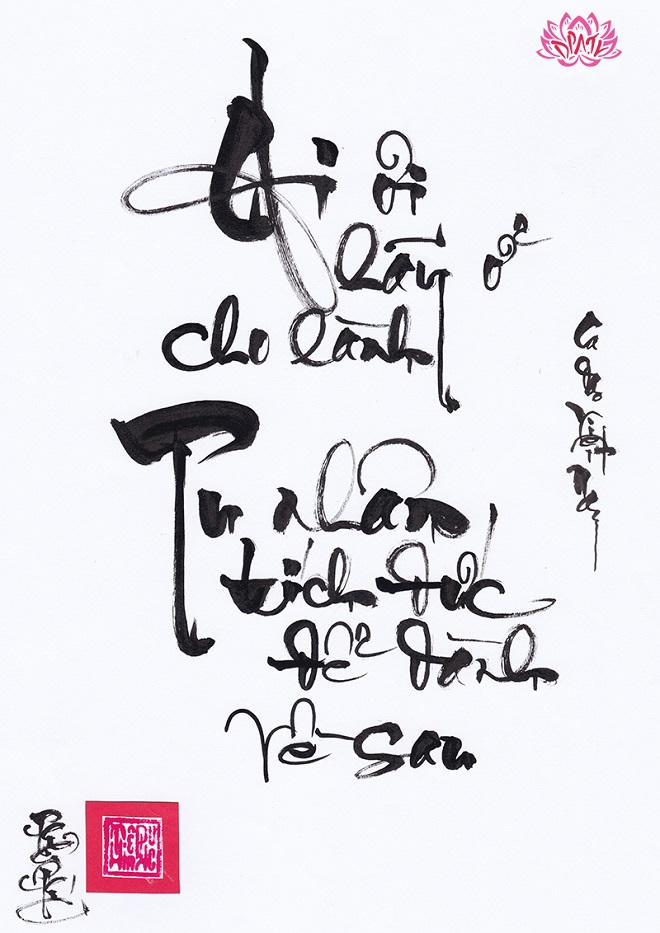 Ai ơi
hãy ở
cho lành
Tu nhân
tích đức
để dành
về sau
Ca dao Việt Nam